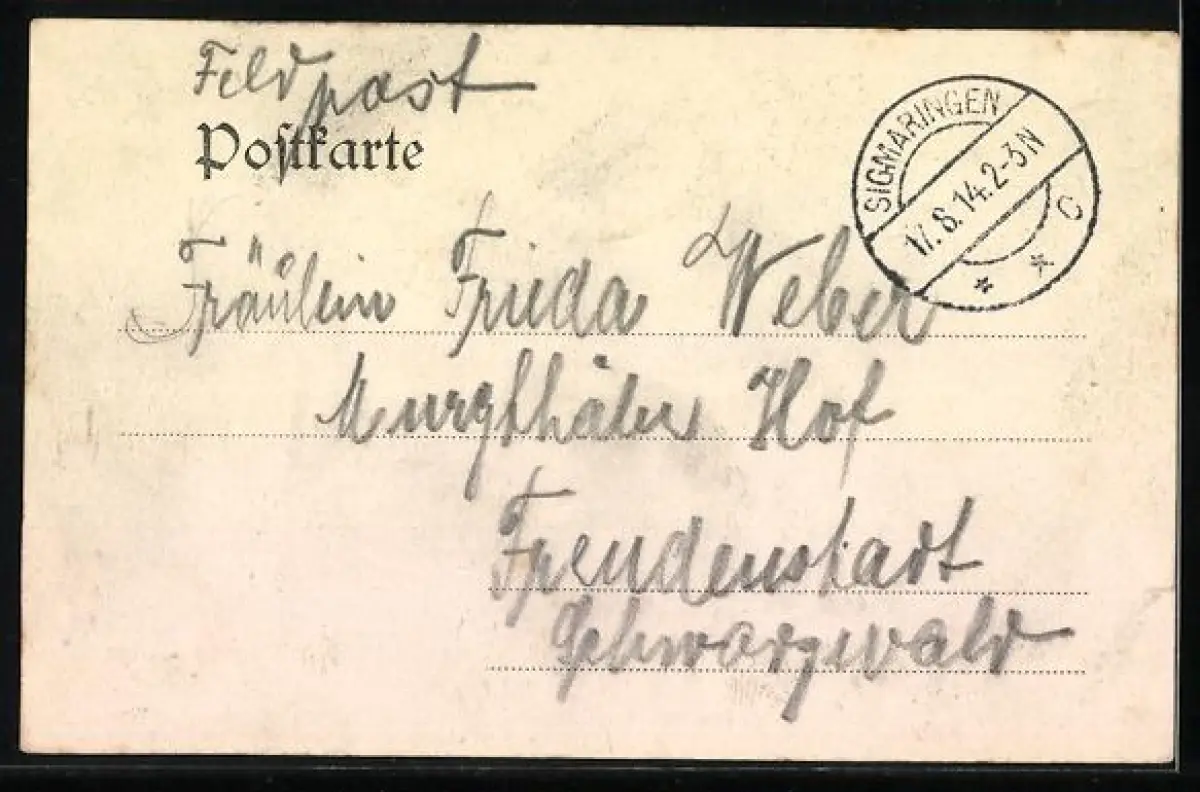 Feldpost
Postkarte
SIGMARINGEN
17.8.14.2-3N
C
* *
Fräulein Frieda Weber
Murgthäler Hof
Freudenstadt
Schwarzwald